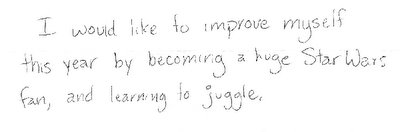 I would like to improve myself
this year by becoming a huge Star Wars
fan, and learning to juggle.